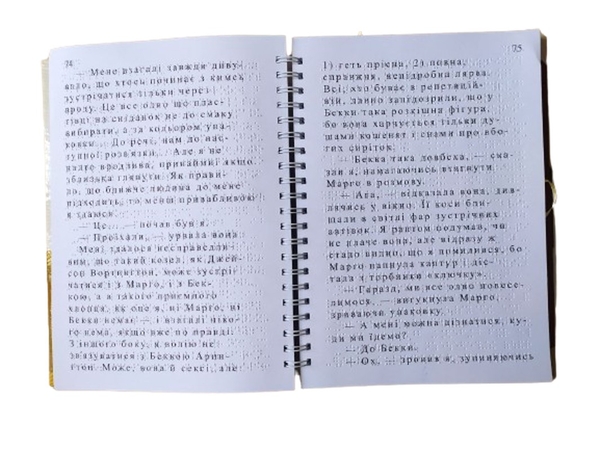 74
— Мене взагалі завжди диву-
вало, що хтось починає з кимсь
зустрічатися тільки через
вроду. Це все одно що плас-
тівці на сніданок не до смаку
вибирати, а за кольором упа-
ковки... До речі, нам до нас-
тупної розв'язки... Але я не
надто вродлива, принаймні якщо
зблизька глянути. Як прави-
ло, що ближче людина до мене
підходить, то менш привабливою
я здаюсь.
— Це... — почав був я.
— Проїхали, — урвала вона.
Мені здалося несправедли-
вим, що такий козел, як Джей-
сон Вортінгтон, може зустрі-
чатися і з Марго, і з Бек-
кою, а в такого приємного
хлопця, як оце я, ні Марго, ні
Бекки немає — і взагалі ніко-
го нема, якщо вже по правді.
З іншого боку, я волію не
зв'язуватися з Беккою Аррін-
гтон. Може, вона й сексі, але
75
1) геть прісна, 2) повна,
справжня, непідробна лярва.
Всі, хто буває в репетицій-
ній, давно запідозрили, що у
Бекки така розкішна фігура,
бо вона харчується тільки ду-
шами кошенят і снами про вбо-
гих сиріток.
— Бекка така довбеха, — ска-
зав я, намагаючись втягнути
Марго в розмову.
— Ага, — відказала вона, див-
лячись у вікно. Її коси бли-
щали в світлі фар зустрічних
автівок. Я раптом подумав, чи
не плаче вона, але відразу ж
стало видно, що я помилився, бо
Марго напнула каптур і діс-
тала з торбинки «ключку».
— Гаразд, ми все одно повесе-
лимося, — вигукнула Марго,
зриваючи упаковку.
— А мені можна дізнатися, ку-
ди ми їдемо?
— До Бекки.
— Ох, — зронив я, зупиняючись